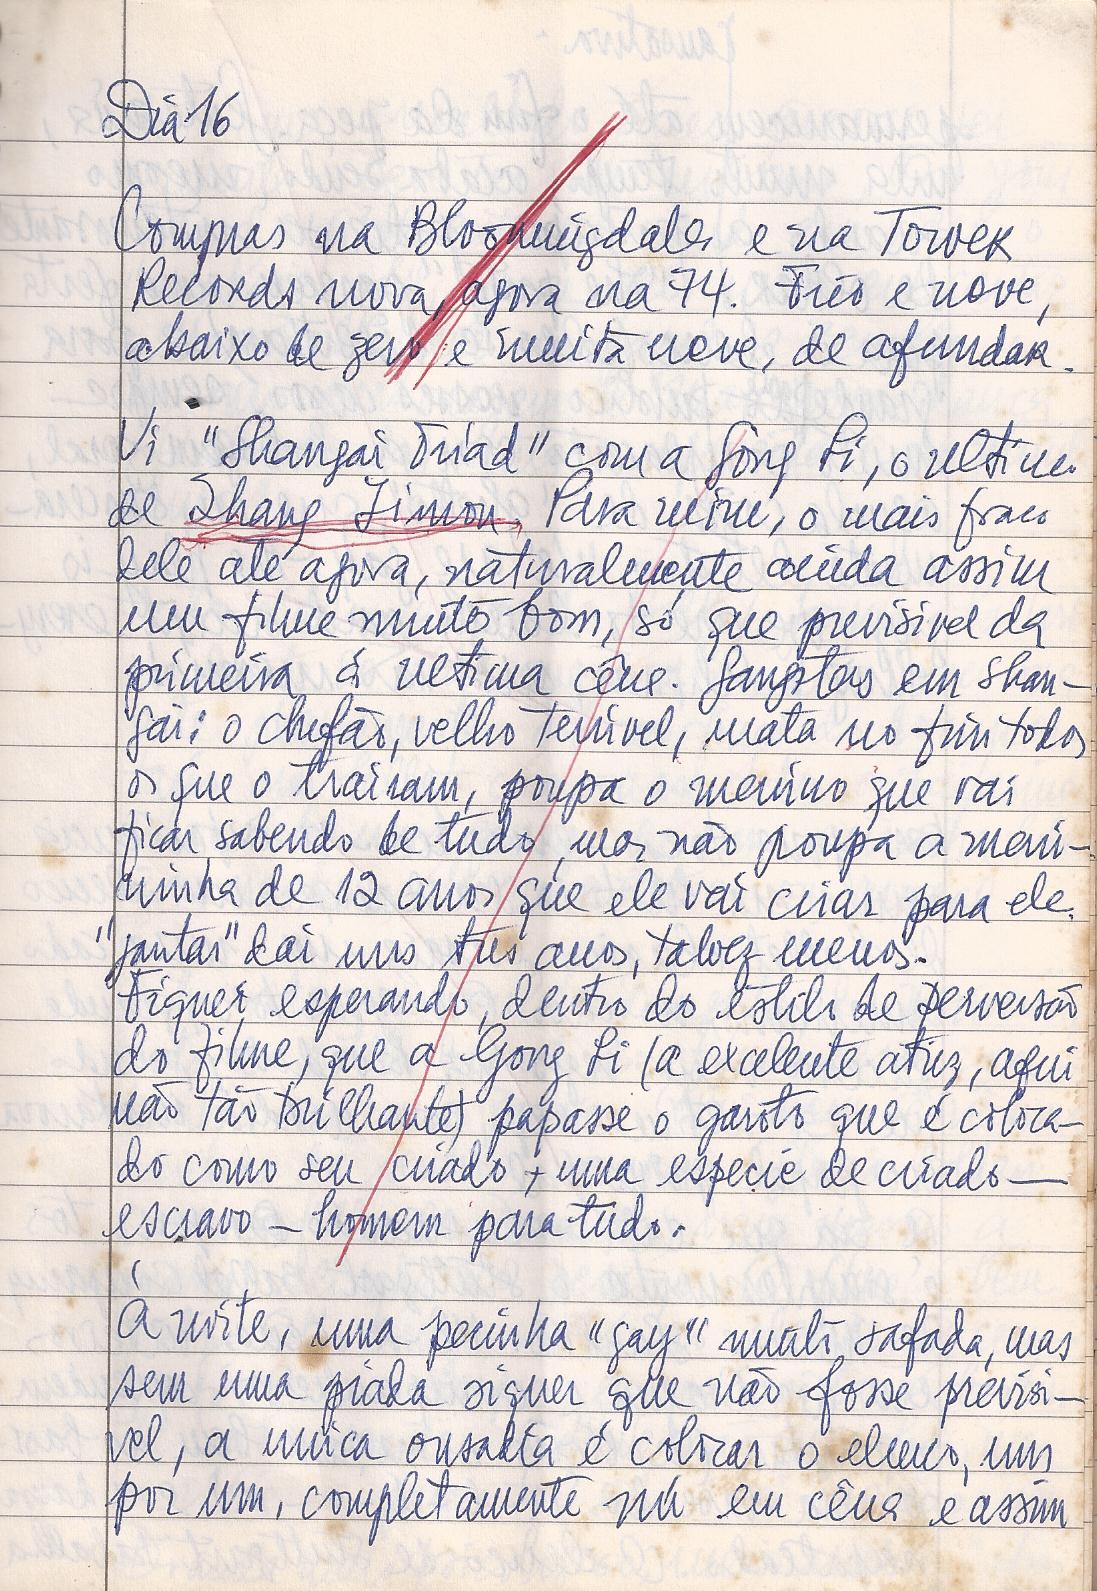 Dia 16
Compras na Bloomingdales e na Tower
Records nova, agora na 74. Frio e neve,
abaixo de zero e muita neve, de afundar.
Vi "Shangai Triad" com a Gong Li, o ultimo
de Zhang Jimou. Para mim, o mais fraco
dele até agora, naturalmente ainda assim
um filme muito bom, só que previsivel da
primeira á ultima cêna. Gangsters em Shan-
gai: o chefão, velho terrivel, mata no fim todos
os que o trairam, poupa o menino que vai
ficar sabendo de tudo, mas não poupa a meni-
ninha de 12 anos que ele vai criar para ele
"jantar" dai uns tres anos, talvez menos.
Fiquei esperando, dentro do estilo de perversão
do filme, que a Gong Li (a excelente atriz, aqui
não tão brilhante) papasse o garoto que é coloca-
do como seu criado, uma especie de criado—
escravo — homem para tudo.
Á noite, uma pecinha "gay" muito safada, mas
sem uma piada siquer que não fosse previsi-
vel, a unica ousadia é colocar o elenco, um
por um, completamente nú em cêna e assim